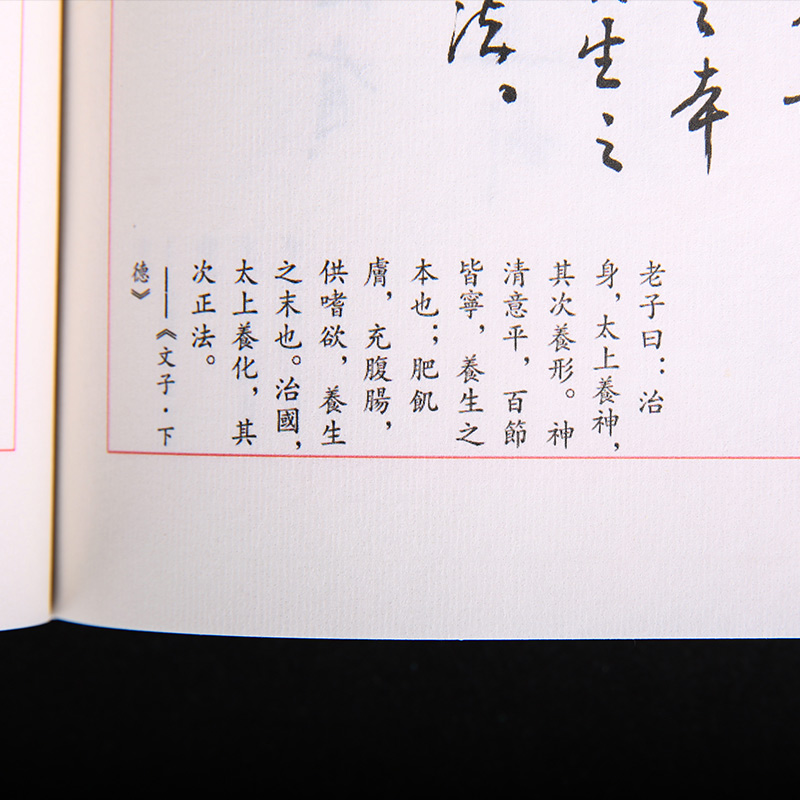 之本
生之
法。
老子曰：治
身，太上養神，
其次養形。神
清意平，百節
皆寧，養生之
本也；肥飢
膚，充腹腸，
供嗜欲，養生
之末也。治國，
太上養化，其
次正法。
——《文子·下
德》